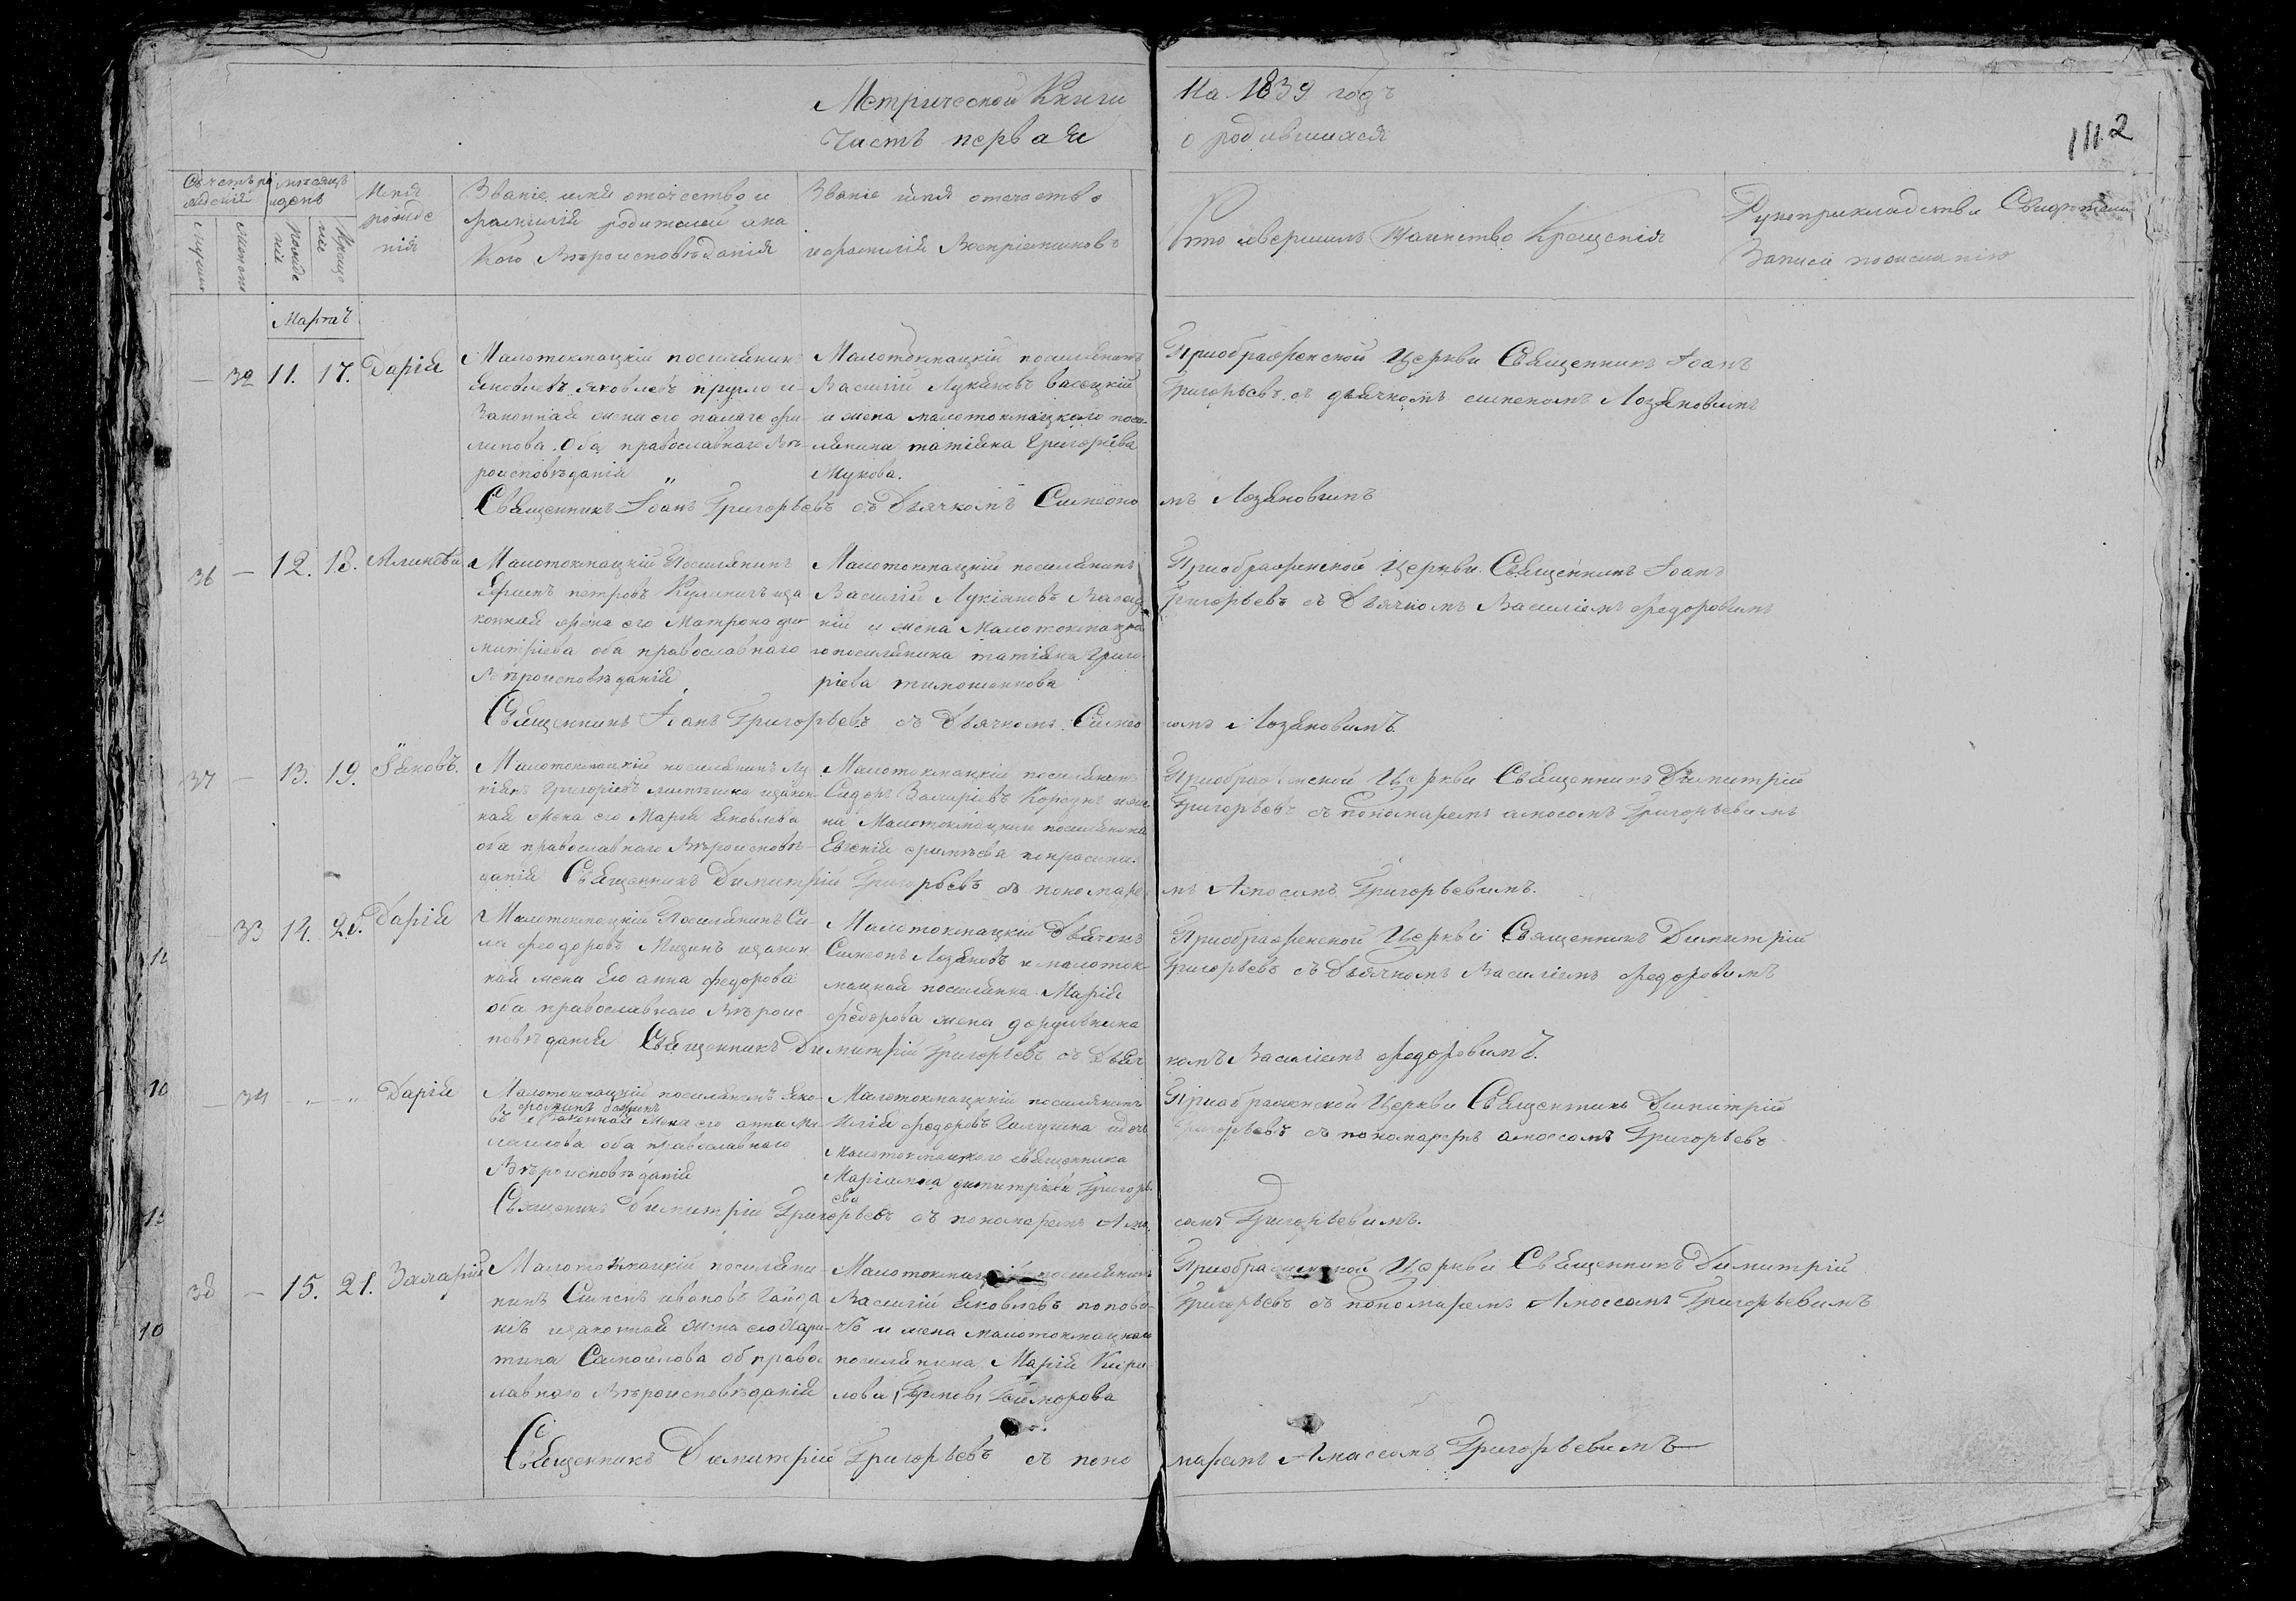 Метрической Книги На 1839 годъ
Часть первая о родившихся
1112
Счетъ родившихся
мѣсяцъ и день
Имя рожде нія
Званіе имя отечество и
фамилія родителей и ка
кого вѣроисповѣданія
Званіе имя отечество
и фамилія воспріемниковъ
Кто совершилъ таинство крещенія
Рукоприкладство Свидѣтелей
Записи по желанію
мужеска
женска
рожде нія
креще нія
Мартъ
— 32 11. 17. Дарія
Малотокмацкій поселянинъ
Яковлевъ
законная жена его палагея фи-
липова. Оба православнаго вѣ-
роисповѣданія
Малотокмацкій поселянинъ
Василій Лукяновъ васецкій
и жена малотокмацкаго посе-
лянина татіяна Григоріева
Мукова.
Приображенской Церкви Священникъ Іоанъ
Григорьевъ съ дьячкомъ симеономъ Лозяновимъ
Священникъ Іоанъ Григорьевъ съ Дьячкомъ Симеоно мъ Лозяновимъ
36 — 12. 18.
Малотокмацкій Поселянинъ
Ефимъ петровъ Куличъ и за
конная жена его Матрона ди-
митріева оба православнаго
Вѣроисповѣданія
Малотокмацкій поселянинъ
Василій Лукіяновъ Васец
кій и жена Малотокмацка
го поселянина татіяна Григо-
ріева тимошенкова
Приображенской Церкви Священникъ Іоанъ
Григорьевъ съ Дьячкомъ Василіемъ Федоровимъ
Священникъ Іоанъ Григорьевъ съ Дьячкомъ Симео номъ Лозяновимъ
37 — 13. 19. Іяковъ.
Малотокмацкій поселянинъ Лу
кіянъ Григоріевъ и закон-
ная жена его Марія Яковлева
оба православнаго Вѣроисповѣ-
данія
Малотокмацкій поселянинъ
Сидоръ Захаріевъ и же
на Малотокмацкаго поселянина
Евгенія
Приображенской Церкви Священникъ Димитрій
Григорьевъ съ пономаремъ амосомъ Григорьевимъ
Священникъ Димитрій Григорьевъ съ пономаре мъ Амосомъ Григорьевимъ.
— 33 14. 20. Дарія
Малотокмацкій Поселянинъ Си-
ла феодоровъ Мизинъ и закон
ная жена Его анна федорова
оба православнаго Вѣроис-
повѣданія
Малотокмацкій Дьячокъ
Симеонъ Лозяновъ и малоток-
мацкая поселянка Марія
федорова жена
Приображенской Церкви Священникъ Димитрій
Григорьевъ съ Дьячкомъ Василіемъ Федоровимъ
Священникъ Димитрій Григорьевъ съ Дьяч комъ Василіемъ Федоровимъ.
— 34 " — " Дарія
Малотокмацкій поселянинъ Яко-
въ и законная жена его анна Ми-
хаилова оба православнаго
Вѣроисповѣданія
Малотокмацкій поселянинъ
Илія федоровъ Галушка и дочь
Малотокмацкого священника
Маріамна димитріева Григорь-
ева
Приображенской Церкви Священникъ Димитрій
Григорьевъ съ пономаремъ амосомъ Григорьевъ
Священникъ Димитрій Григорьевъ съ пономаремъ Амо сомъ Григорьевимъ.
38 — 15. 21. Захарій
Малотокмацкій поселяни-
нинъ Симеонъ ивановъ Гайда
къ и законная жена его Хари-
тина Самоилова об право
лавного Вѣроисповѣданія
Малотокмацкій поселянинъ
Василій Яковлевъ попови-
чъ и жена малотокмацкаго
поселянина Марія Кири
лова
Приображенской Церкви Священникъ Димитрій
Григорьевъ съ пономаремъ Амоссомъ Григорьевимъ
Священникъ Димитрій Григорьевъ съ поно маремъ Амассомъ Григорьевимъ